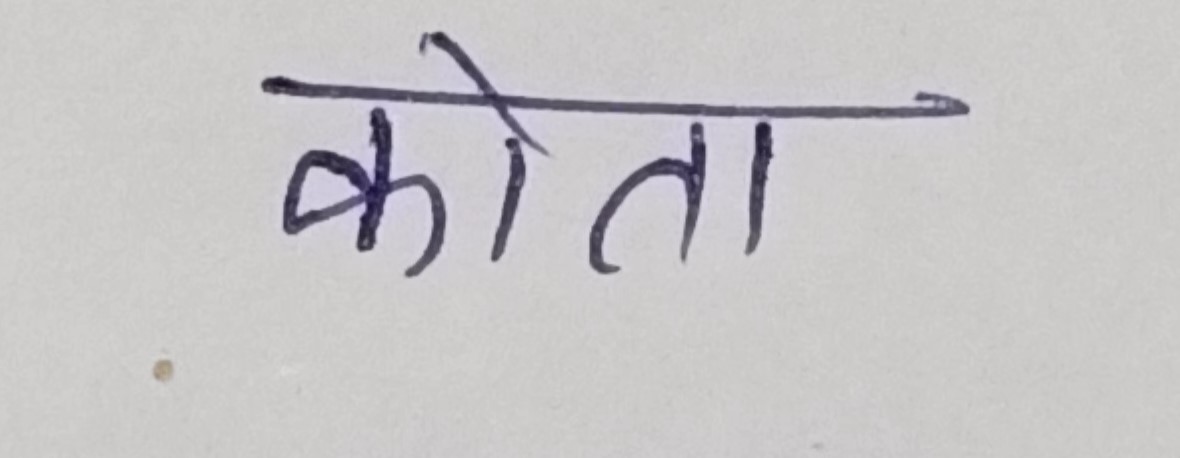 कोता